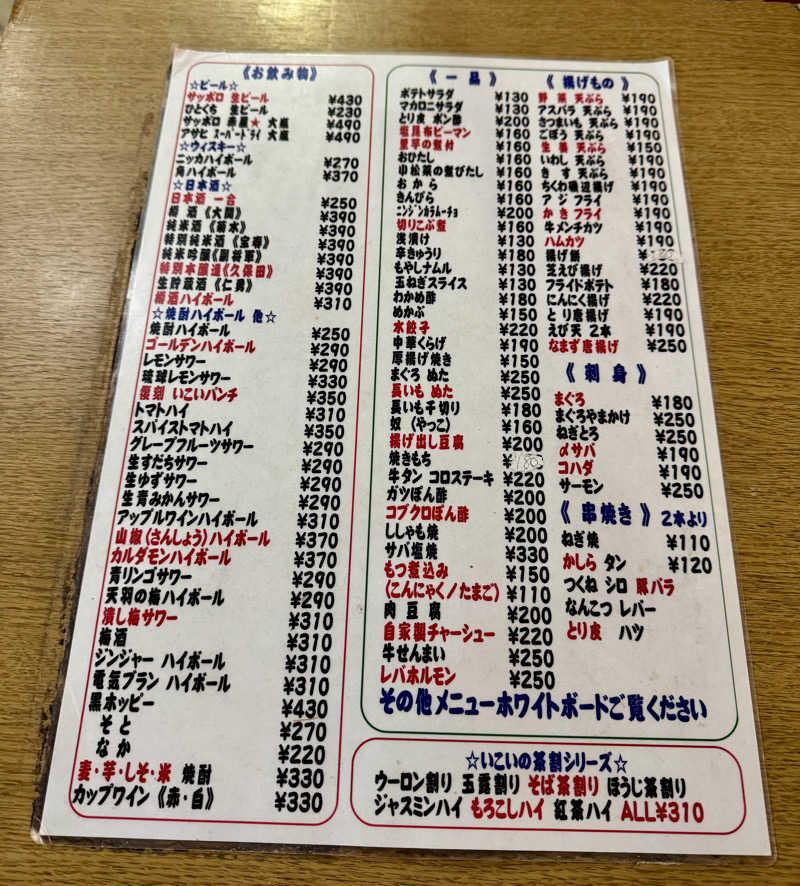 《お飲み物》
☆ビール☆
サッポロ 生ビール ¥430
ひとくち 生ビール ¥230
サッポロ 赤星★大瓶 ¥490
アサヒ スーパードライ 大瓶 ¥490
☆ウィスキー☆
ニッカハイボール ¥270
角ハイボール ¥370
☆日本酒☆
日本酒 一合 ¥250
樽 酒《大関》 ¥390
純米酒《菊水》 ¥390
特別純米酒《宝寿》 ¥390
純米吟醸《副将軍》 ¥390
特別本醸造《久保田》 ¥390
生貯蔵酒《仁勇》 ¥390
樽酒ハイボール ¥310
☆焼酎ハイボール 他☆
焼酎ハイボール ¥250
ゴールデンハイボール ¥290
レモンサワー ¥290
琉球レモンサワー ¥330
復刻 いこいパンチ ¥350
トマトハイ ¥310
スパイストマトハイ ¥350
グレープフルーツサワー ¥290
生すだちサワー ¥290
生ゆずサワー ¥290
生青みかんサワー ¥290
アップルワインハイボール ¥310
山椒(さんしょう)ハイボール ¥370
カルダモンハイボール ¥370
青リンゴサワー ¥290
天羽の梅ハイボール ¥290
潰し梅サワー ¥310
梅酒 ¥310
ジンジャー ハイボール ¥310
電気ブラン ハイボール ¥310
黒ホッピー ¥430
そと ¥270
なか ¥220
麦・芋・しそ・米 焼酎 ¥330
カップワイン《赤・白》 ¥330
《 一 品 》
ポテトサラダ ¥130
マカロニサラダ ¥130
とり皮 ポン酢 ¥200
塩昆布ピーマン ¥160
里芋の煮付 ¥160
おひたし ¥160
小松菜の煮びたし ¥160
おから ¥160
きんぴら ¥160
ニンジンカラムーチョ ¥200
切りこぶ煮 ¥160
浅漬け ¥130
辛きゅうり ¥180
もやしナムル ¥130
玉ねぎスライス ¥130
わかめ酢 ¥180
めかぶ ¥150
水餃子 ¥220
中華くらげ ¥190
厚揚げ焼き ¥150
まぐろ ぬた ¥250
長いも ぬた ¥250
長いも千切り ¥180
奴 (やっこ) ¥160
揚げ出し豆腐 ¥200
焼きもち ¥
牛タン コロステーキ ¥220
ガツぽん酢 ¥200
コブクロぽん酢 ¥200
ししゃも焼 ¥200
サバ塩焼 ¥330
もつ煮込み ¥150
(こんにゃく/たまご) ¥110
肉 豆 腐 ¥200
自家製チャーシュー ¥220
牛せんまい ¥250
レバホルモン ¥250
《 揚げもの 》
野 菜 天ぷら ¥190
アスパラ 天ぷら ¥190
さつまいも 天ぷら ¥190
ごぼう 天ぷら ¥190
生 姜 天ぷら ¥150
いわし 天ぷら ¥190
き す 天ぷら ¥190
ちくわ磯辺揚げ ¥190
ア ジ フライ ¥190
か き フライ ¥190
牛メンチカツ ¥190
ハムカツ ¥190
揚げ餅 ¥
芝えび揚げ ¥220
フライドポテト ¥180
にんにく揚げ ¥220
と り 唐揚げ ¥190
えび天 2本 ¥190
なまず唐揚げ ¥250
《 刺 身 》
まぐろ ¥180
まぐろやまかけ ¥250
ねぎとろ ¥250
〆サバ ¥190
コハダ ¥190
サーモン ¥250
《 串焼き 》 2本より
ねぎ焼 ¥110
かしら タン ¥120
つくね シロ 豚バラ
なんこつ レバー
とり皮 ハツ
その他メニューホワイトボードご覧ください
☆いこいの茶割シリーズ☆
ウーロン割り 玉露割り そば茶割り ほうじ茶割り
ジャスミンハイ もろこしハイ 紅茶ハイ ALL¥310